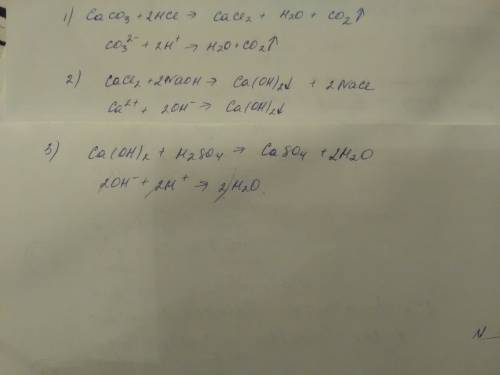 1) CaCO₃ + 2HCl → CaCl₂ + H₂O + CO₂↑
CO₃²⁻ + 2H⁺ → H₂O + CO₂↑
2) CaCl₂ + 2NaOH → Ca(OH)₂↓ + 2NaCl
Ca²⁺ + 2OH⁻ → Ca(OH)₂↓
3) Ca(OH)₂ + H₂SO₄ → CaSO₄ + 2H₂O
2OH⁻ + 2H⁺ → 2H₂O
N